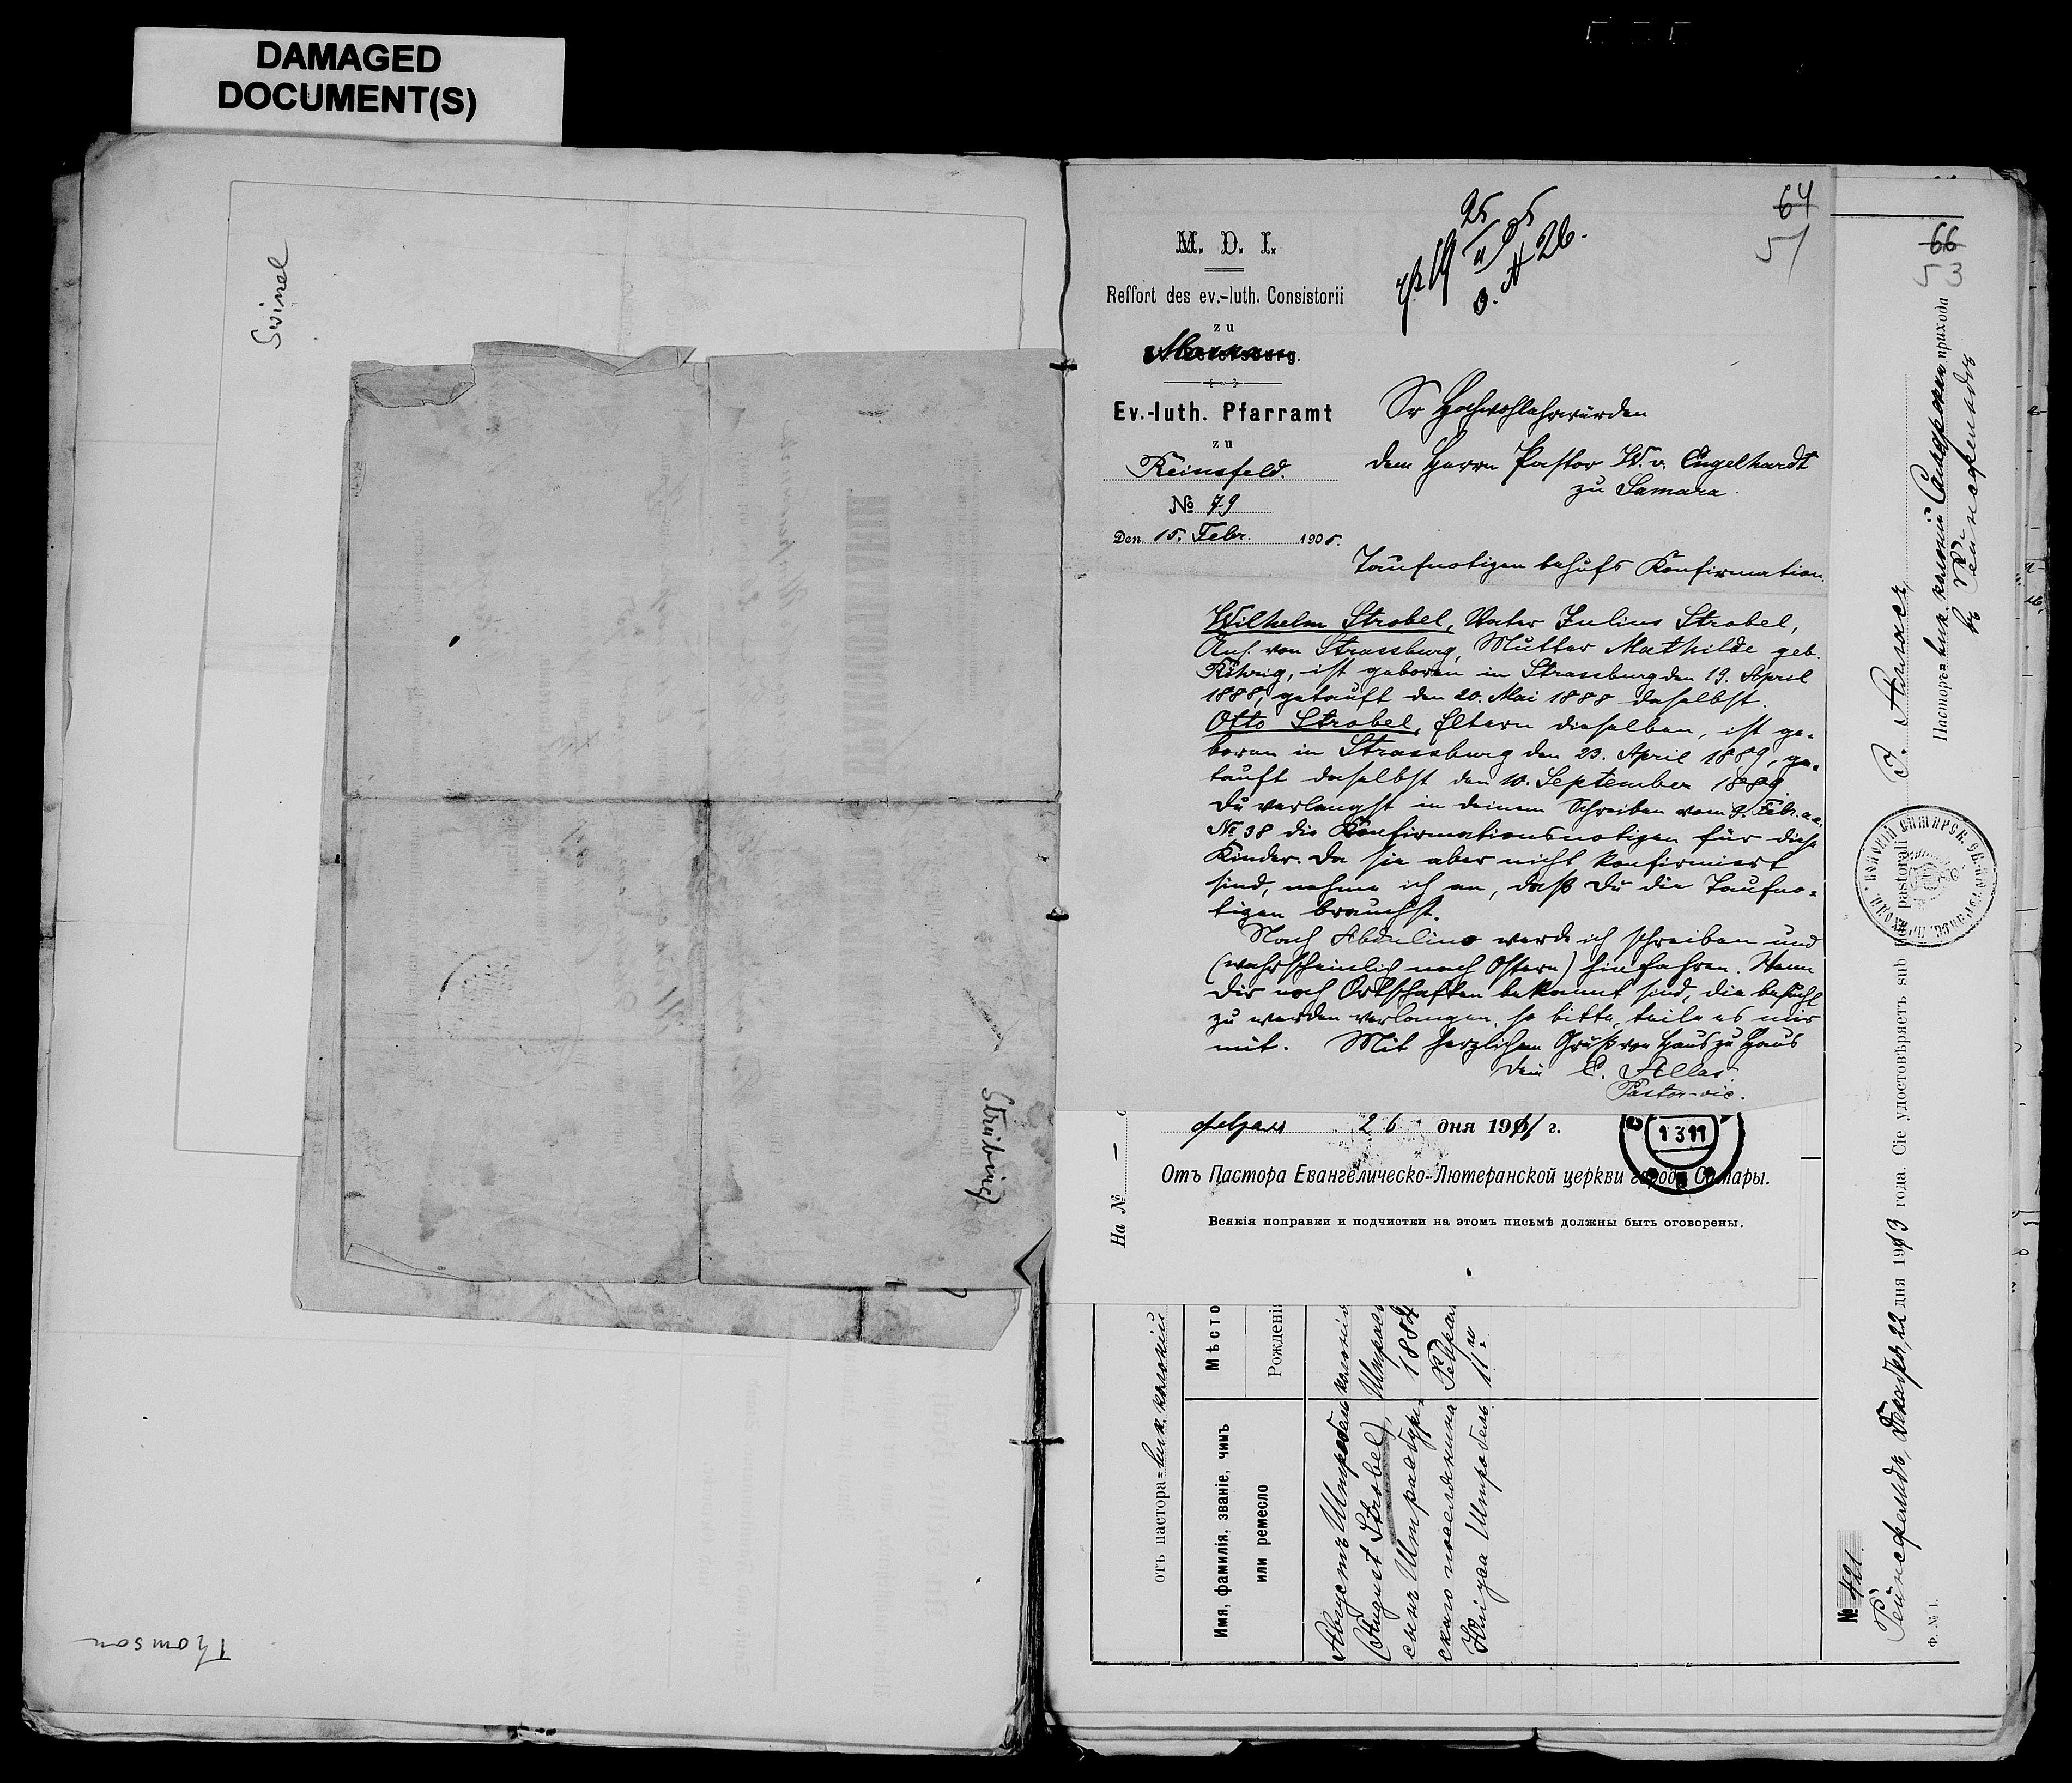 DAMAGED
DOCUMENT(S)
Swirsel
Strübing
Thomson
64
57
M. D. I.
Ressort des ev.-luth. Consistorii
zu
Ev.-luth. Pfarramt
zu
Reinsfeld.
№ 79
Den 15. Febr. 1905.
Sr Hochwohlehrwürden
dem Herrn Pastor W. v. Engelhardt
zu Samara.
Taufnotizen behufs Konfirmation.
Wilhelm Strobel, Vater Julius Strobel,
Ans. von Strassburg, Mutter Mathilde geb.
ist geboren in Strassburg den 19. April
1888, getauft den 20. Mai 1888 daselbst.
Otto Strobel, Eltern dieselben, ist ge-
boren in Strassburg den 23. April 1889, ge-
tauft daselbst den 10. September 1889
Du verlangst in deinem Schreiben vom 9. Febr. a.c.
№ 38 die Konfirmationsnotizen für diese
Kinder. Da sie aber nicht konfirmiert
sind, nehme ich an, daß Du die Taufno-
tizen brauchst.
Nach Abdulino werde ich schreiben und
(wahrscheinlich nach Ostern) hinfahren. Wenn
Dir noch Ortschaften bekannt sind, die besucht
zu werden verlangen, so bitte, teile es mir
mit. Mit herzlichem Gruß von Haus zu Haus
Dein Allas
Pastor-vic.
На №
февраля 26 дня 1911 г.
1 3 11
Отъ Пастора Евангелическо-Лютеранской церкви города Самары.
Всякія поправки и подчистки на этомъ письмѣ должны быть оговорены.
отъ пастора
колоніи
Мѣсто
Рожденія
Имя, фамилія, званіе, чимъ
или ремесло
Августъ Штробель
(August Strobel),
сынъ Штрасбург-
скаго поселянина
Штробель
колонія
Штрасб
1884
Феврал
11го
66
53
№ 421.
Рейнсфельдъ, Декабря 22 дня 1913 года. Сіе удостовѣряетъ sub fide pastorali
Ф. № 1.
Пасторъ
прихода
въ Рейнсфельдѣ